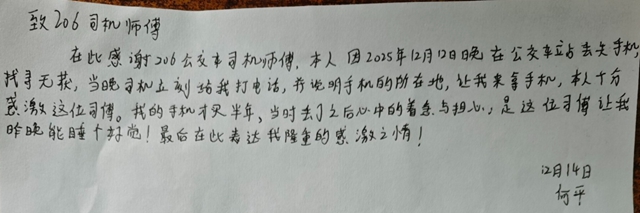 致206司机师傅
在此感谢206公交车司机师傅,本人因2025年12月12日晚在公交车站丢失手机,
找寻无获,当晚司机立刻给我打电话,并说明手机的所在地,让我来拿手机,本人十分
感激这位司傅。我的手机才买半年,当时丢了之后心中的着急与担心,是这位司傅让我
昨晚能睡个好觉!最后在此表达我隆重的感激之情!
12月14日
何平